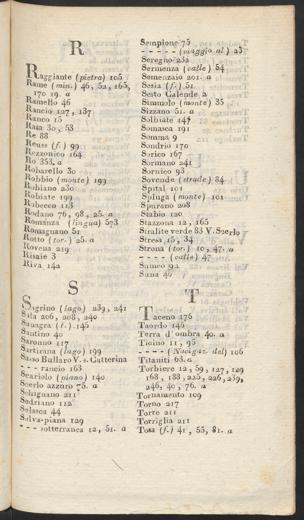 R
Raggiante (pietra) 105
Rame (min.) 46, 52, 165,
170 19. a
Ramello 46
Rancio 127, 137
Ranco 15
Rasa 30, 53
Re 88
Reuss (f.) 99
Rezzonico 164
Ro 353. a
Robarello 30
Robbio (monte) 193
Robiano 230
Robiate 199
Robecco 113
Rodano 76, 98, 25. a
Romanza (lingua) 573
Romagnano 51
Rotto (tor.) 25. a
Rovena 219
Rusaie 3
Riva, 142
S
Sagrino (lago) 239, 241
Sala 206, 208, 240
Sanagra (f.) 145
Santino 40
Saronno 117
Sartirana (lago) 199
Sasso Ballaro V. s. Catterina
- - - rancio 163
Scariolo (piano) 140
Scerlo azzuro 75. a
Schignano 211
Sedriano 112
Selasca 44
Selva-piana 129
- - - sotterranea 12, 51. a
Sempione 75
- - - - - (viaggio al) 23
Seregno 232
Sermenza (valle) 54
Semenzaio 201. a
Sesia (f.) 51
Sesto Calende 2
Simmolo (monte) 35
Sizzano 51. a
Solbiate 147
Somasca 191
Somma 9
Sondrio 170
Sorico 167
Sormano 241
Sornico 93
Sovende (strade) 84
Spital 101
Spluga (monte) 101
Spirano 208
Stabio 120
Stazzona 12, 165
Stralite verde 83 V. Scorlo
Stresa 15, 34
Strona (tor.) 10, 47. a
- - - - (valle) 47
Sumeo 92
Suna 46
T
Taceno 176
Taordo 145
Terra d'ombra 40. a
Ticino 11, 95
- - - - (Navigaz. del) 106
Titaniti 63. a
Torbiere 12, 59, 127, 129
168, 188, 225, 226, 239,
246, 40, 76. a
Tornamento 109
Torno 217
Torre 211
Torriglia 211
Tosa (f.) 41, 55, 81. a